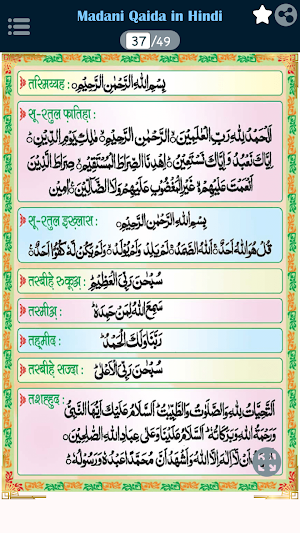 Madani Qaida in Hindi
37/49
तस्मियह : بِسْمِ اللّٰهِ الرَّحْمٰنِ الرَّحِيْمِ
सू-रतुल फ़ातिहा :
اَلْحَمْدُ لِلّٰهِ رَبِّ الْعٰلَمِيْنَ الرَّحْمٰنِ الرَّحِيْمِ مٰلِكِ يَوْمِ الدِّيْنِ
اِيَّاكَ نَعْبُدُ وَاِيَّاكَ نَسْتَعِيْنُ اِهْدِنَا الصِّرَاطَ الْمُسْتَقِيْمَ صِرَاطَ الَّذِيْنَ
اَنْعَمْتَ عَلَيْهِمْ غَيْرِ الْمَغْضُوْبِ عَلَيْهِمْ وَلَا الضَّآلِّيْنَ اٰمِين
सू-रतुल इख़्लास : بِسْمِ اللّٰهِ الرَّحْمٰنِ الرَّحِيْمِ
قُلْ هُوَ اللّٰهُ اَحَدٌ اَللّٰهُ الصَّمَدُ لَمْ يَلِدْ وَلَمْ يُوْلَدْ وَلَمْ يَكُنْ لَّهٗ كُفُوًا اَحَدٌ
तस्बीहे रुकूअ़ : سُبْحٰنَ رَبِّيَ الْعَظِيْمِ
तस्मीअ़ : سَمِعَ اللّٰهُ لِمَنْ حَمِدَهٗ
तह़मीद : رَبَّنَا وَلَكَ الْحَمْدُ
तस्बीहे सज्दा : سُبْحٰنَ رَبِّيَ الْاَعْلٰى
तशह्हुद :
اَلتَّحِيَّاتُ لِلّٰهِ وَالصَّلَوَاتُ وَالطَّيِّبٰتُ اَلسَّلَامُ عَلَيْكَ اَيُّهَا النَّبِيُّ
وَرَحْمَةُ اللّٰهِ وَبَرَكَاتُهٗ اَلسَّلَامُ عَلَيْنَا وَعَلٰى عِبَادِ اللّٰهِ الصّٰلِحِيْنَ
اَنْ لَّا اِلٰهَ اِلَّا اللّٰهُ وَاَشْهَدُ اَنَّ مُحَمَّدًا عَبْدُهٗ وَرَسُوْلُهٗ